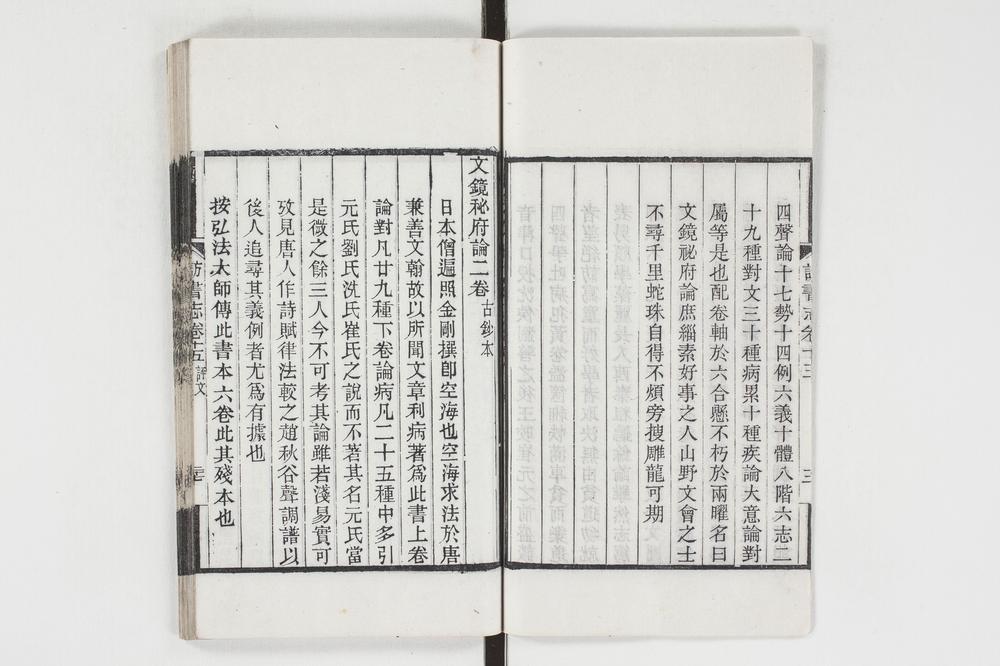 四聲論十七勢十四例六義十體八階六志二
十九種對文三十種病累十種疾論大意論對
屬等是也配卷軸於六合懸不朽於兩曜名曰
文鏡祕府論庶緇素好事之人山野文會之士
不尋千里蛇珠自得不煩旁搜雕龍可期
文鏡祕府論二卷 古鈔本
日本僧遍照金剛撰卽空海也空海求法於唐
兼善文翰故以所聞文章利病著爲此書上卷
論對凡廿九種下卷論病凡二十五種中多引
元氏劉氏沈氏崔氏之說而不著其名元氏當
是微之餘三人今不可考其論雖若淺易實可
攷見唐人作詩賦律法較之趙秋谷聲調譜以
後人追尋其義例者尤爲有據也
按弘法大師傳此書本六卷此其殘本也
訪書志卷十五 評文